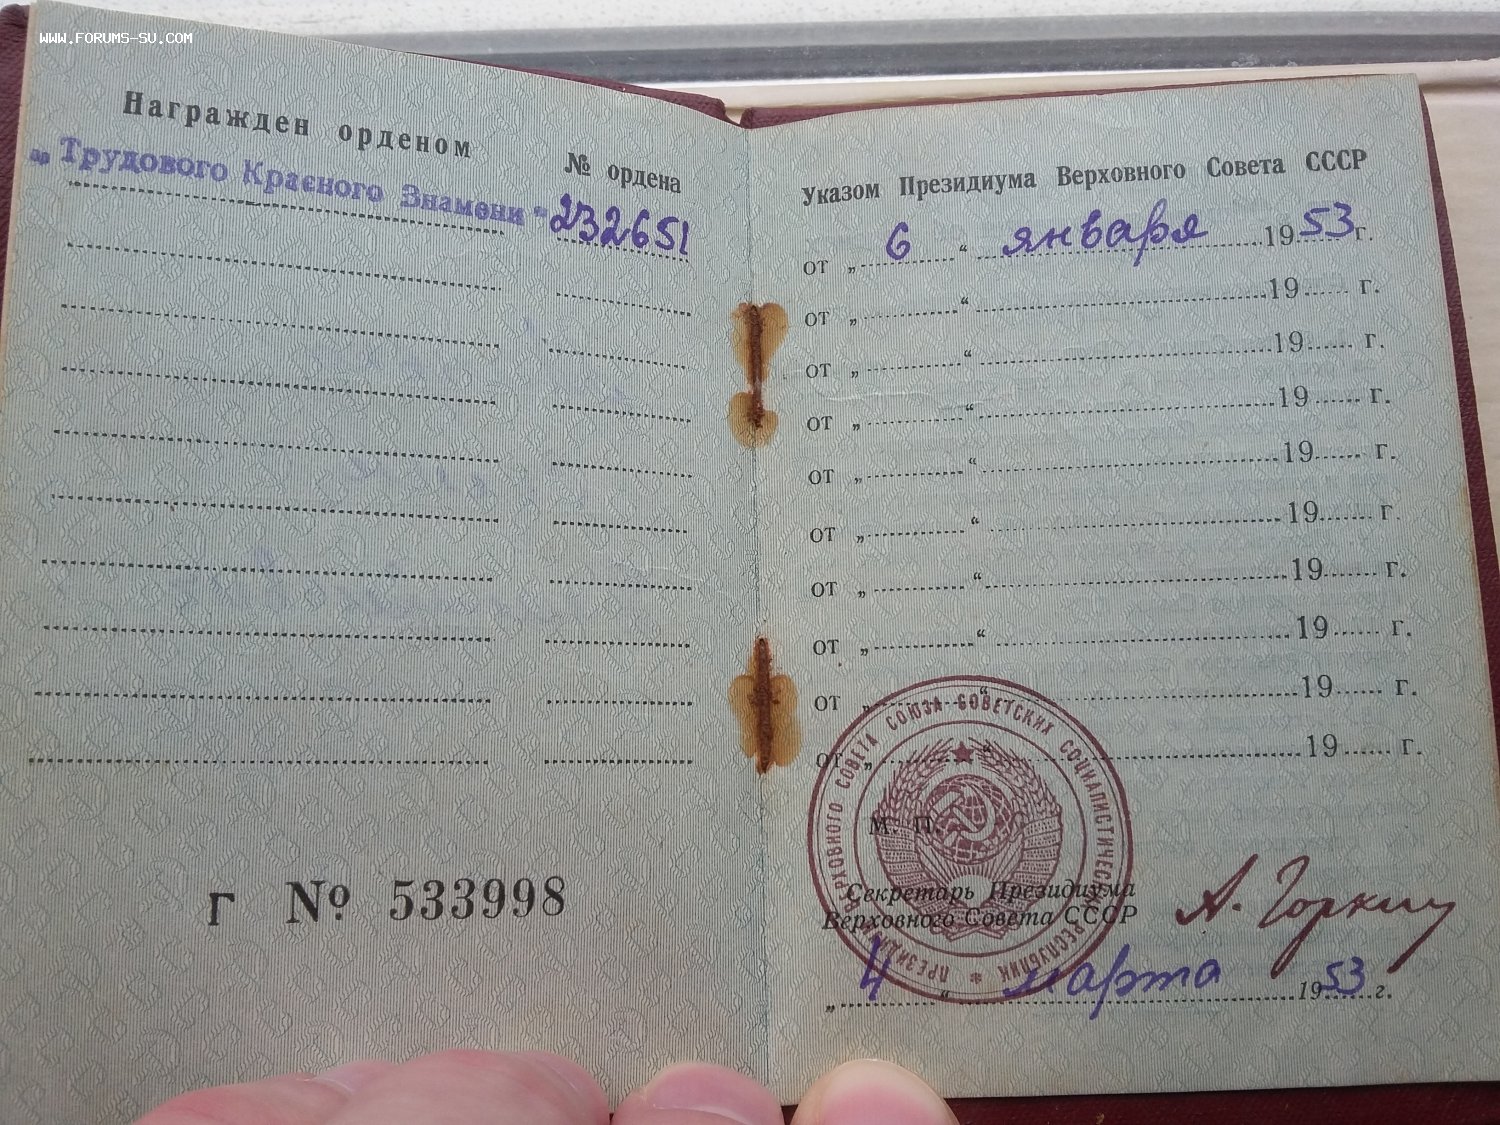 WWW.FORUMS-SU.COM
Награжден орденом
№ ордена
„Трудового Красного Знамени“ 232651
Г № 533998
Указом Президиума Верховного Совета СССР
от „ 6 “ января 1953 г.
от „ “ 19 г.
от „ “ 19 г.
от „ “ 19 г.
от „ “ 19 г.
от „ “ 19 г.
от „ “ 19 г.
от „ “ 19 г.
от „ “ 19 г.
от „ “ 19 г.
М. П.
ПРЕЗИДИУМ ВЕРХОВНОГО СОВЕТА СОЮЗА СОВЕТСКИХ СОЦИАЛИСТИЧЕСКИХ РЕСПУБЛИК *
Секретарь Президиума
Верховного Совета СССР
А. Горкин
„ 4 “ марта 1953 г.